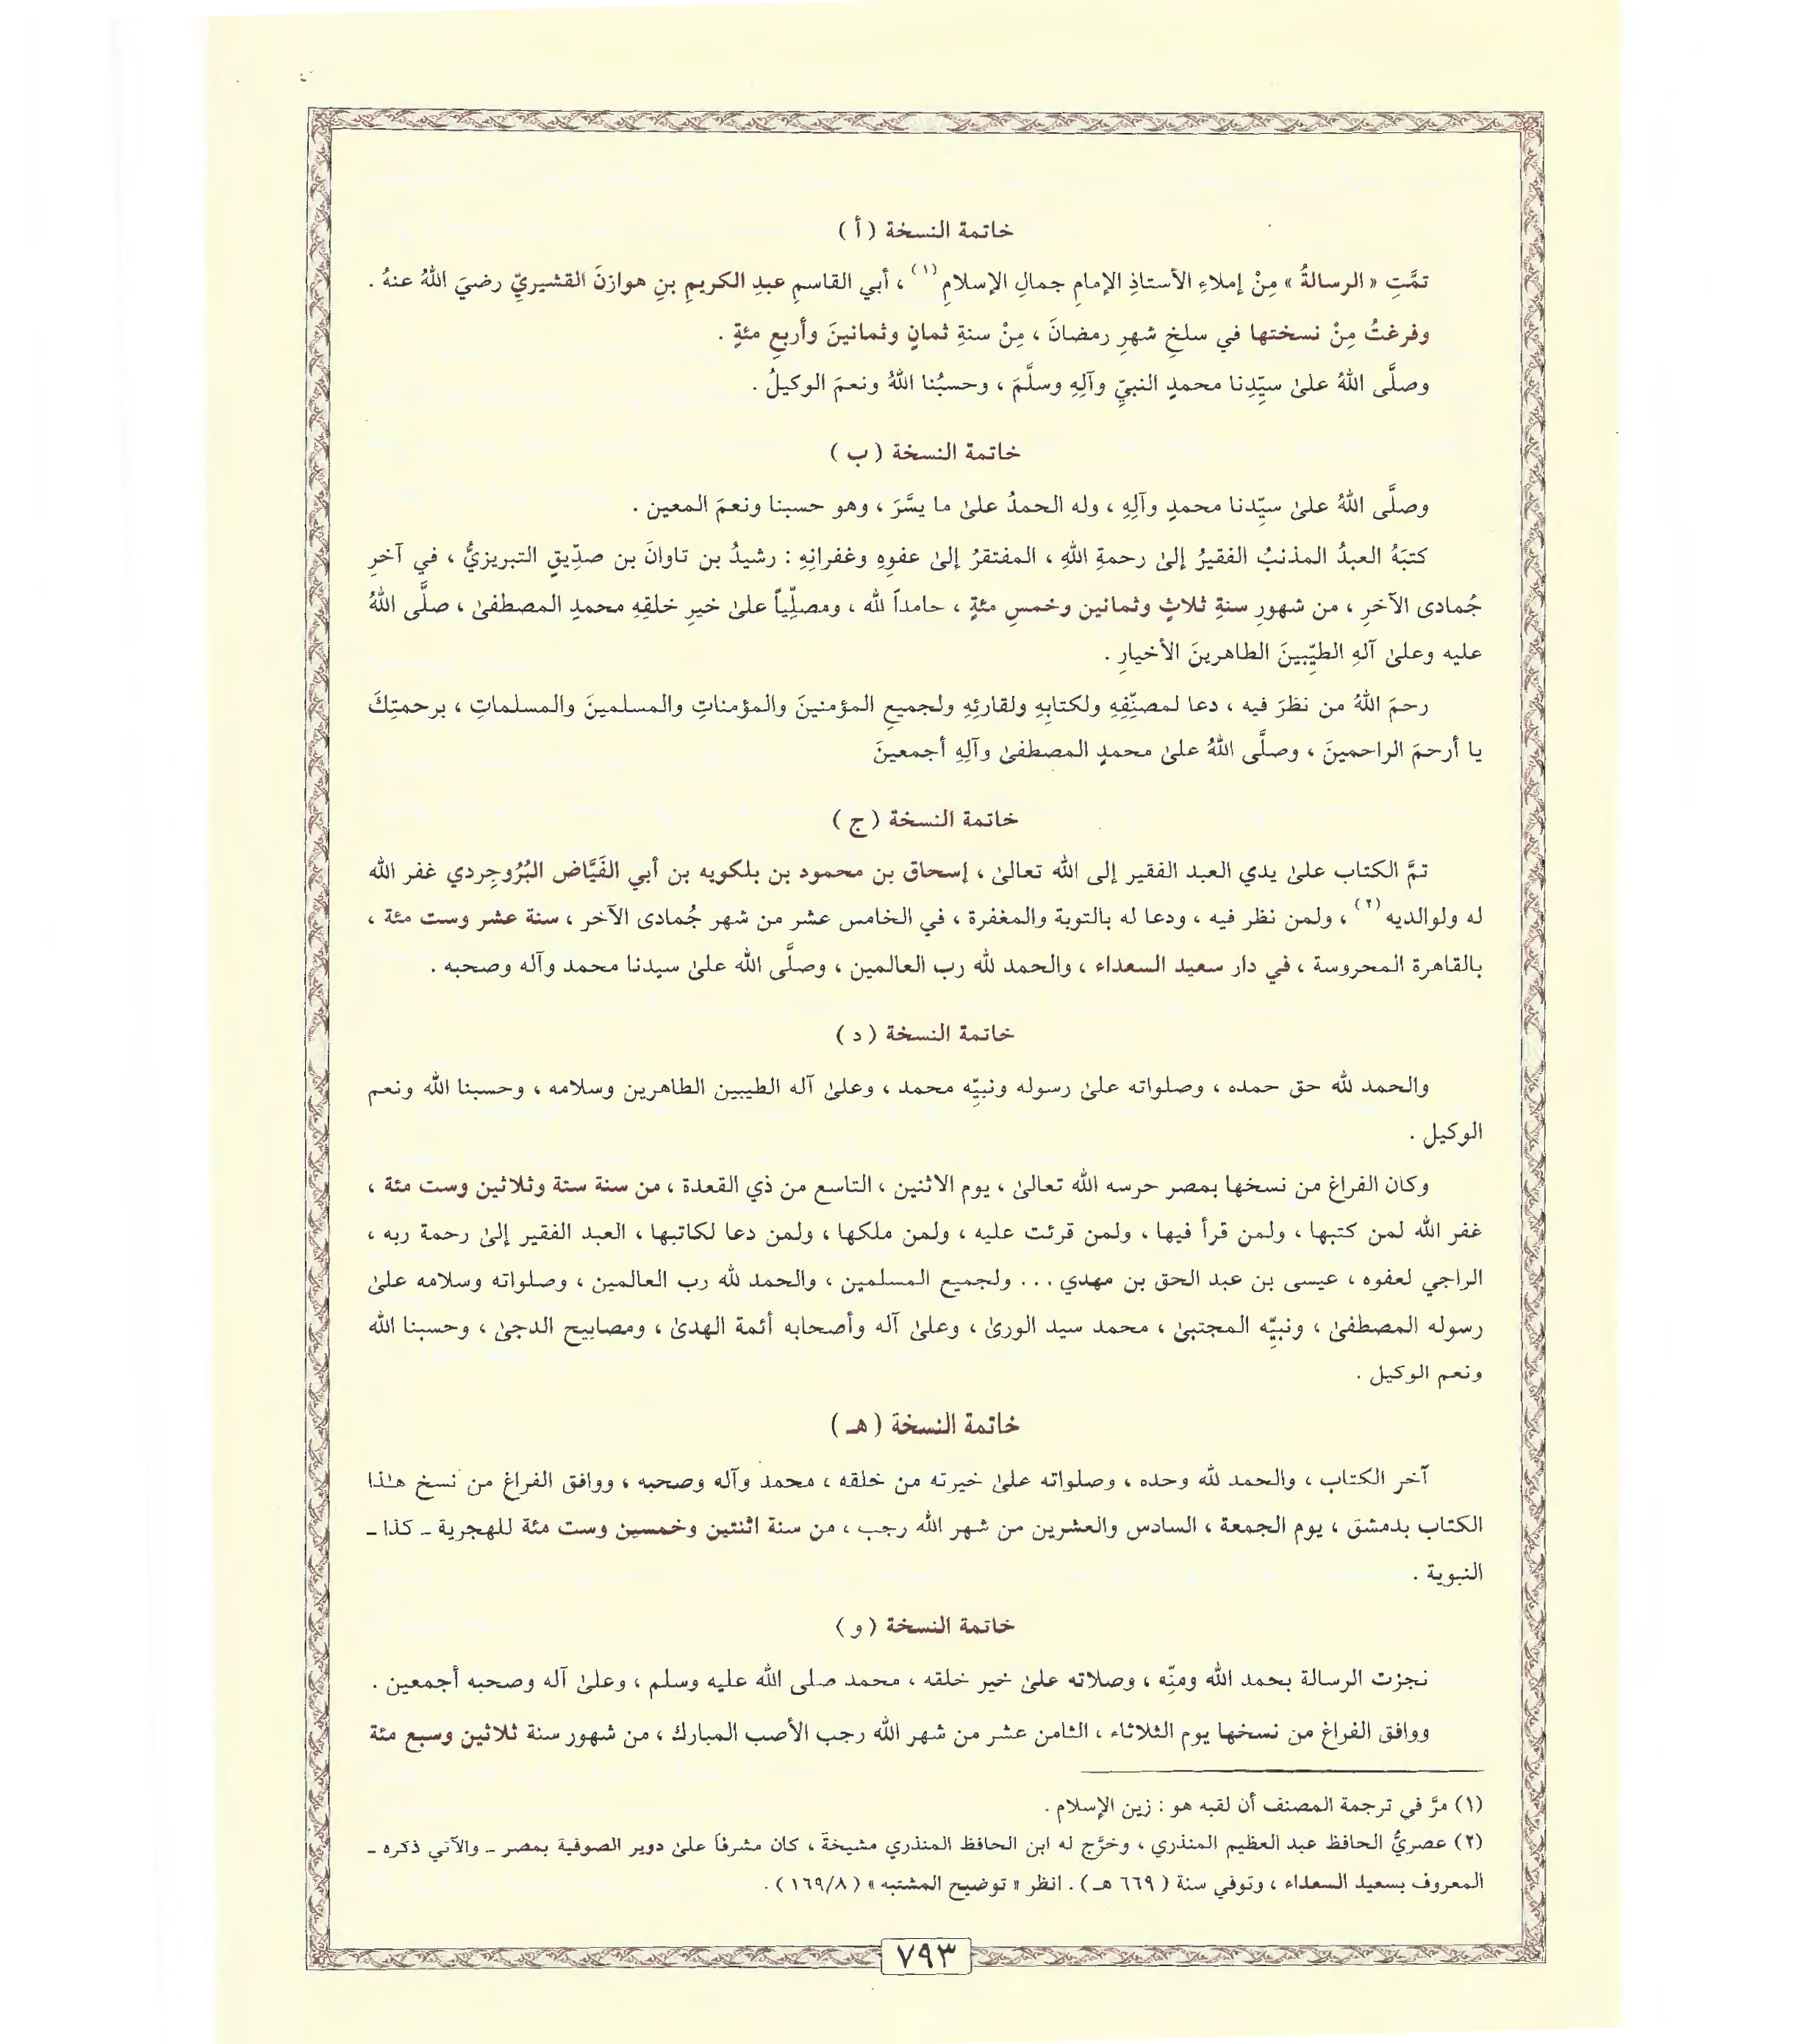 خاتمة النسخة ( أ )
تمَّتِ « الرسالةُ » مِنْ إملاءِ الأستاذِ الإمامِ جمالِ الإسلامِ(١) ، أبي القاسمِ عبدِ الكريمِ بنِ هوازنَ القشيريِّ رضيَ اللهُ عنهُ .
وفرغتُ مِنْ نسختها في سلخِ شهرِ رمضانَ ، مِنْ سنةِ ثمانٍ وثمانينَ وأربعِ مئةٍ .
وصلَّى اللهُ علىٰ سيِّدِنا محمدٍ النبيِّ وآلِهِ وسلَّمَ ، وحسبُنا اللهُ ونعمَ الوكيلُ .
خاتمة النسخة ( ب )
وصلَّى اللهُ علىٰ سيِّدنا محمدٍ وآلِهِ ، وله الحمدُ علىٰ ما يسَّرَ ، وهو حسبنا ونعمَ المعين .
كتبَهُ العبدُ المذنبُ الفقيرُ إلىٰ رحمةِ اللهِ ، المفتقرُ إلىٰ عفوِهِ وغفرانِهِ : رشيدُ بن تاوانَ بن صدِّيقٍ التبريزيُّ ، في آخرِ
جُمادى الآخرِ ، من شهورِ سنةِ ثلاثٍ وثمانين وخمسِ مئةٍ ، حامداً لله ، ومصلِّياً علىٰ خيرِ خلقِهِ محمدِ المصطفىٰ ، صلَّى اللهُ
عليه وعلىٰ آلهِ الطيِّبينَ الطاهرينَ الأخيارِ .
رحمَ اللهُ من نظرَ فيه ، دعا لمصنِّفِهِ ولكتابِهِ ولقارئِهِ ولجميعِ المؤمنينَ والمؤمناتِ والمسلمينَ والمسلماتِ ، برحمتِكَ
يا أرحمَ الراحمينَ ، وصلَّى اللهُ علىٰ محمدٍ المصطفىٰ وآلِهِ أجمعينَ
خاتمة النسخة ( ج )
تمَّ الكتاب علىٰ يدي العبد الفقير إلى الله تعالىٰ ، إسحاق بن محمود بن بلكويه بن أبي الفَيَّاض البُرُوجِردي غفر الله
له ولوالديه(٢) ، ولمن نظر فيه ، ودعا له بالتوبة والمغفرة ، في الخامس عشر من شهر جُمادى الآخر ، سنة عشر وست مئة ،
بالقاهرة المحروسة ، في دار سعيد السعداء ، والحمد لله رب العالمين ، وصلَّى الله علىٰ سيدنا محمد وآله وصحبه .
خاتمة النسخة ( د )
والحمد لله حق حمده ، وصلواته علىٰ رسوله ونبيِّه محمد ، وعلىٰ آله الطيبين الطاهرين وسلامه ، وحسبنا الله ونعم
الوكيل .
وكان الفراغ من نسخها بمصر حرسه الله تعالىٰ ، يوم الاثنين ، التاسع من ذي القعدة ، من سنة ستة وثلاثين وست مئة ،
غفر الله لمن كتبها ، ولمن قرأ فيها ، ولمن قرئت عليه ، ولمن ملكها ، ولمن دعا لكاتبها ، العبد الفقير إلىٰ رحمة ربه ،
الراجي لعفوه ، عيسى بن عبد الحق بن مهدي . . . ولجميع المسلمين ، والحمد لله رب العالمين ، وصلواته وسلامه علىٰ
رسوله المصطفىٰ ، ونبيِّه المجتبىٰ ، محمد سيد الورىٰ ، وعلىٰ آله وأصحابه أئمة الهدىٰ ، ومصابيح الدجىٰ ، وحسبنا الله
ونعم الوكيل .
خاتمة النسخة ( هـ )
آخر الكتاب ، والحمد لله وحده ، وصلواته علىٰ خيرته من خلقه ، محمد وآله وصحبه ، ووافق الفراغ من نسخ هـٰذا
الكتاب بدمشق ، يوم الجمعة ، السادس والعشرين من شهر الله رجب ، من سنة اثنتين وخمسين وست مئة للهجرية ـ كذا ـ
النبوية .
خاتمة النسخة ( و )
نجزت الرسالة بحمد الله ومنِّه ، وصلاته علىٰ خير خلقه ، محمد صلى الله عليه وسلم ، وعلىٰ آله وصحبه أجمعين .
ووافق الفراغ من نسخها يوم الثلاثاء ، الثامن عشر من شهر الله رجب الأصب المبارك ، من شهور سنة ثلاثين وسبع مئة
(١) مرَّ في ترجمة المصنف أن لقبه هو : زين الإسلام .
(٢) عصريُّ الحافظ عبد العظيم المنذري ، وخرَّج له ابن الحافظ المنذري مشيخةً ، كان مشرفاً علىٰ دوير الصوفية بمصر ـ والآتي ذكره ـ
المعروف بسعيد السعداء ، وتوفي سنة ( ٦٦٩ هـ ) . انظر « توضيح المشتبه » ( ١٦٩/٨ ) .
٧٩٣